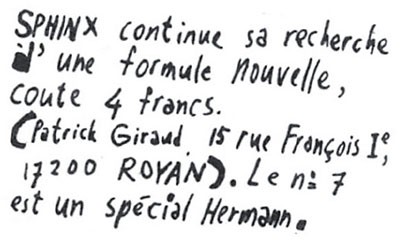 SPHINX continue sa recherche
d'une formule nouvelle,
coute 4 francs.
(Patrick Giraud, 15 rue François Ie,
17200 ROYAN). Le n: 7
est un spécial Hermann.